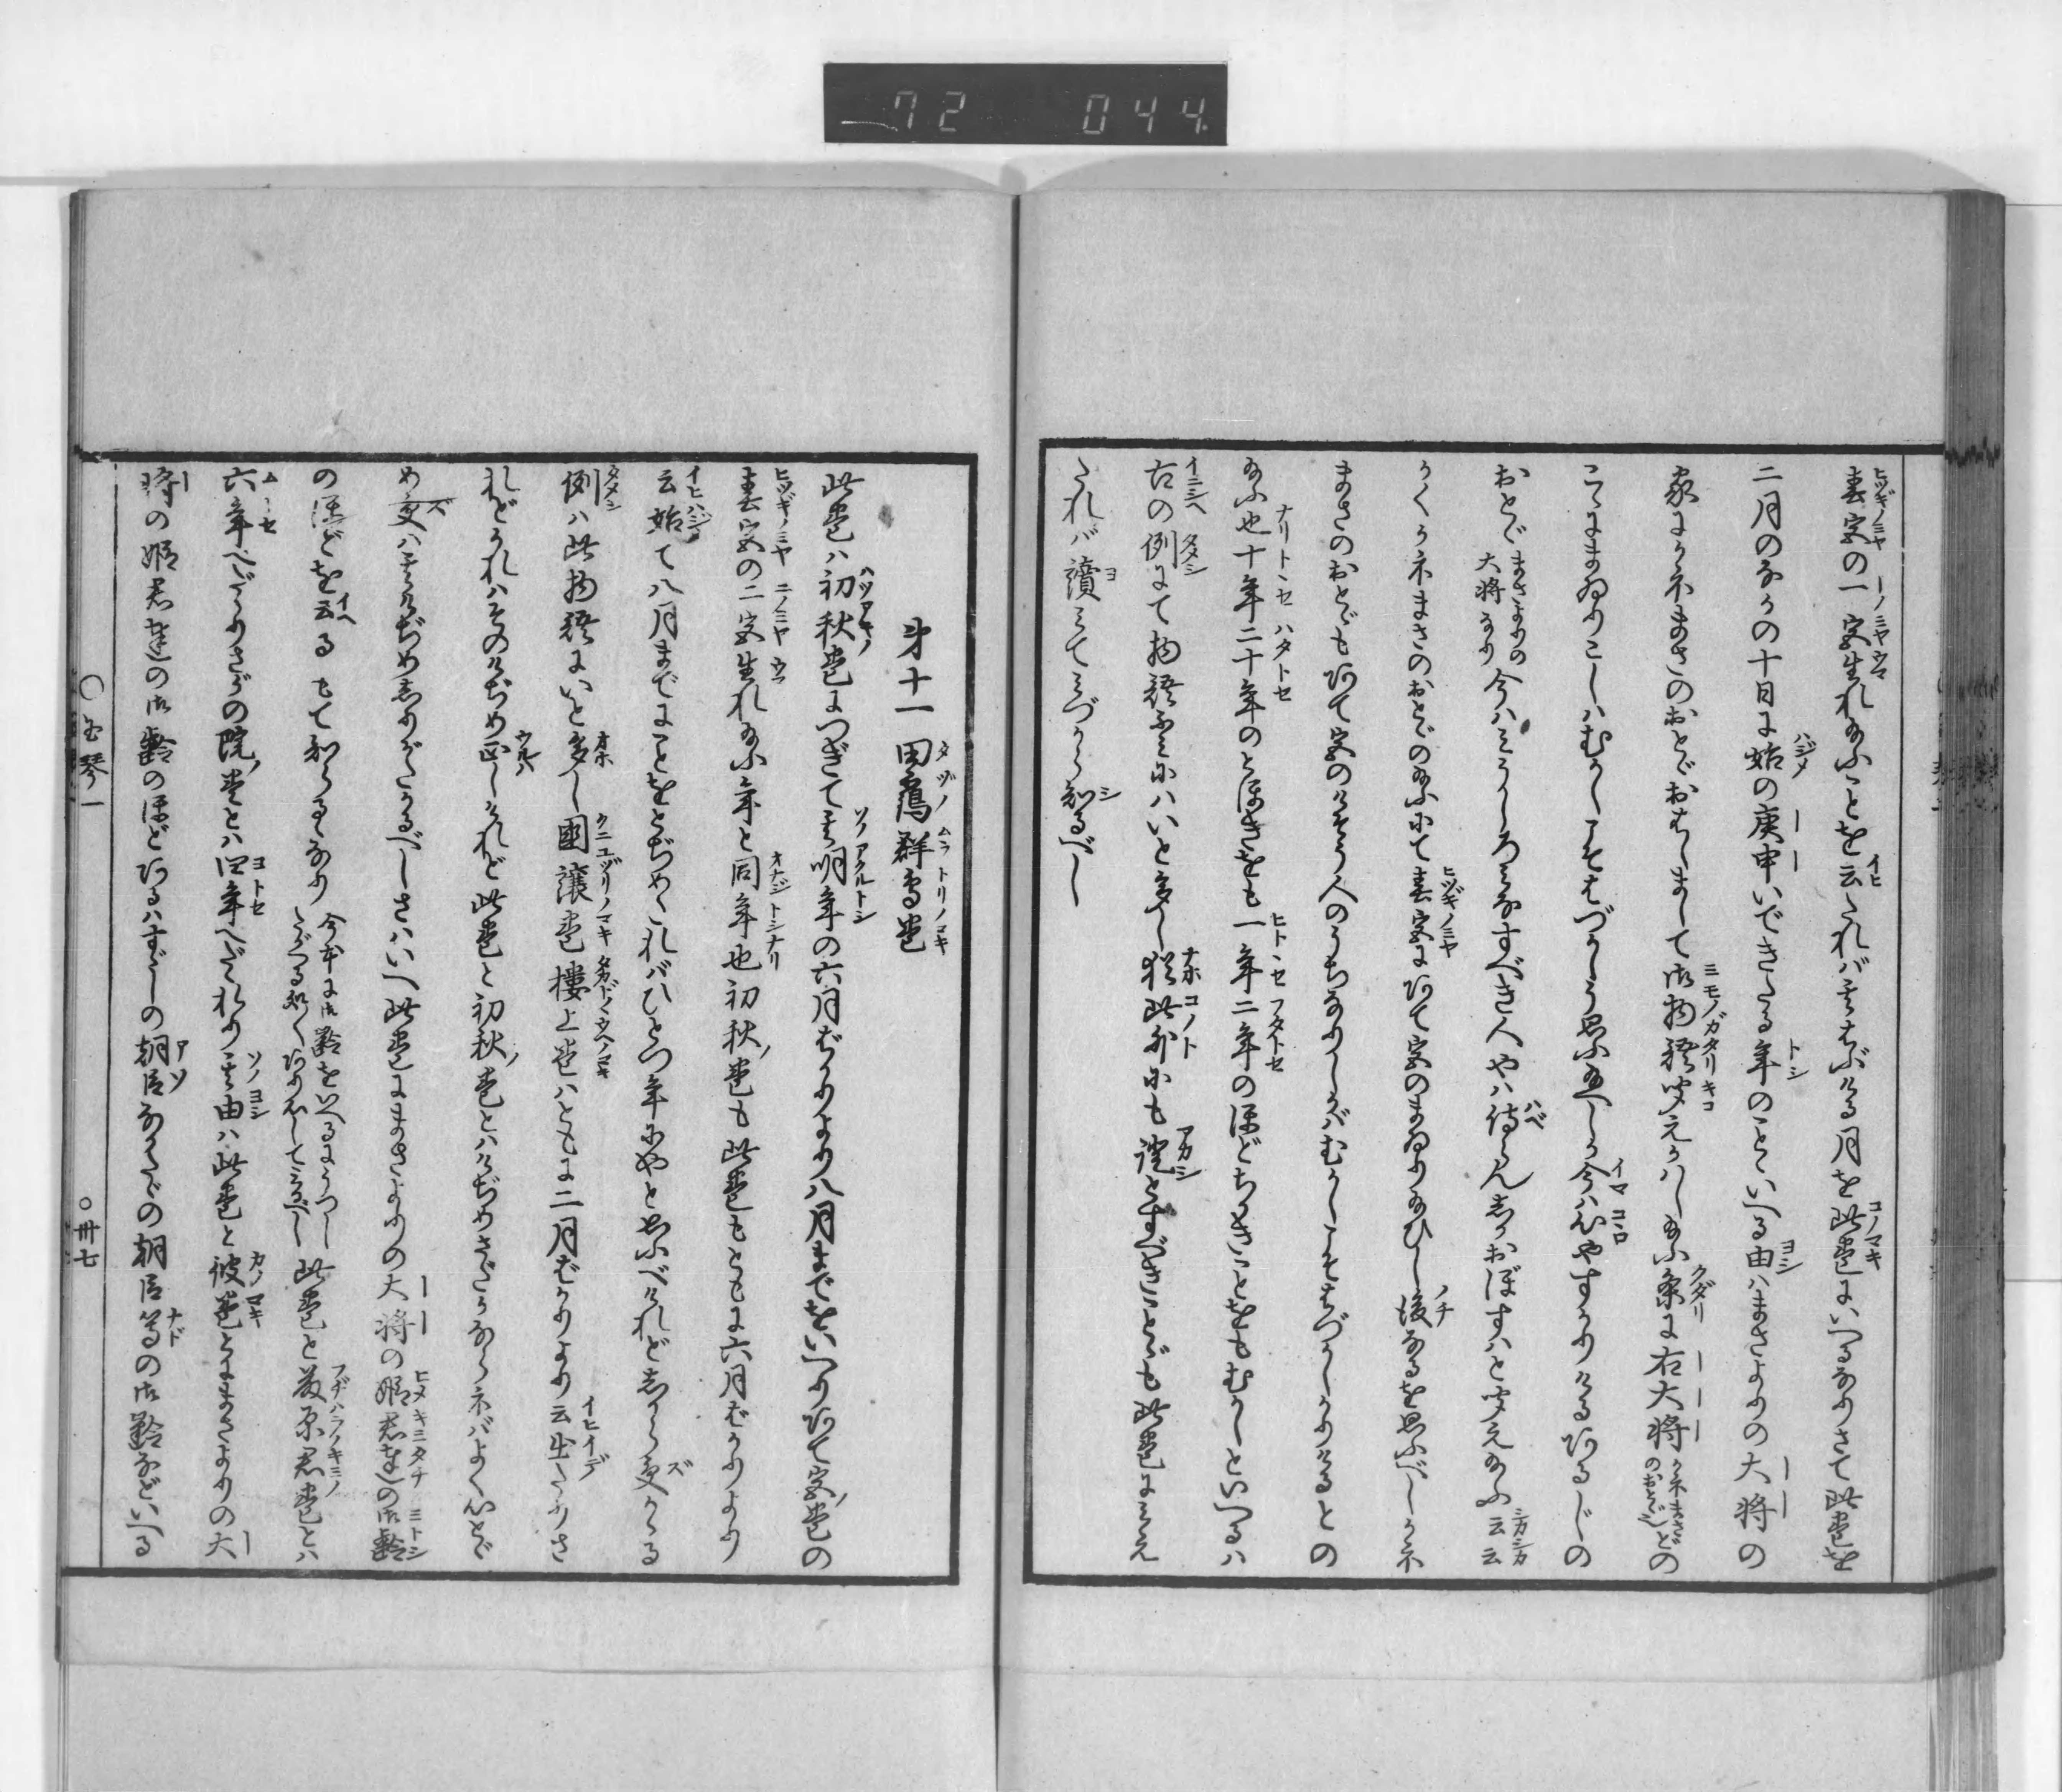 72 044
春宮の一宮生れ給ふことを云たればそはぶける月を此巻にいへるなりさて此巻を
二月のなかの十日に始の庚申いできたる年のことゝいへる由ハまさよりの大将の
家にかねまさのおとどおはしまして御物語聞えかハし給ふ条に右大将かねまさどのゝおとゞ也どの
こゝにまゐりこしハむかしこそはづかしう思ふ給へしか今ハ心やすかりけるあるじの
おとどまさよりの大将なり今ハミうしろミなすべき人やハ侍らんしかおぼすハと聞え給ふ云云
かくかねまさのおとどの給ふにて春宮にあて宮のまゐり給ひし後なるを思ふべしかね
まさのおとども あて宮のけさう人のうちなりしかバむかしこそはづかしかりけるとの
給ふ也十年二十年のとほきをも一年二年のほどちかきことをもむかしといへるハ
古の例にて物語ぶミにハいと多し猶此外にも証とすべきことども此巻にミえ
たれバ讀ミてミづから知るべし
第十一 田鶴群鳥巻
此巻ハ初秋巻につぎて其明年の六月ばかりより八月までをいへりあて宮巻の
春宮の二宮生れ給ふ年と同年也初秋巻も此巻もともに六月ばかりより
云始て八月までにことをとぢめたれバひとつ年にやと思ふべけれどしからずかゝる
例ハ此物語にいと多し國譲巻樓上巻ハともに二月ばかりより云出たりさ
れどこれハそのけぢめ正しけれど此巻と初秋巻とハけぢめさだかならネバよく心とゞ
め ずハそのけぢめしりがたかるべしさハいへ此巻にまさよりの大将の姫君達の御齢
のほどを云るもて知らるゝなり此巻と藤原君巻とハ
六年へだゝりさがの院巻とハ四年へだゝれり其由ハ此巻と彼巻とにまさよりの大
将の姫君達の御齢のほどあるハすゞしの朝臣なかたゞの朝臣等の御齢などいへる
〇玉琴一
〇卅七